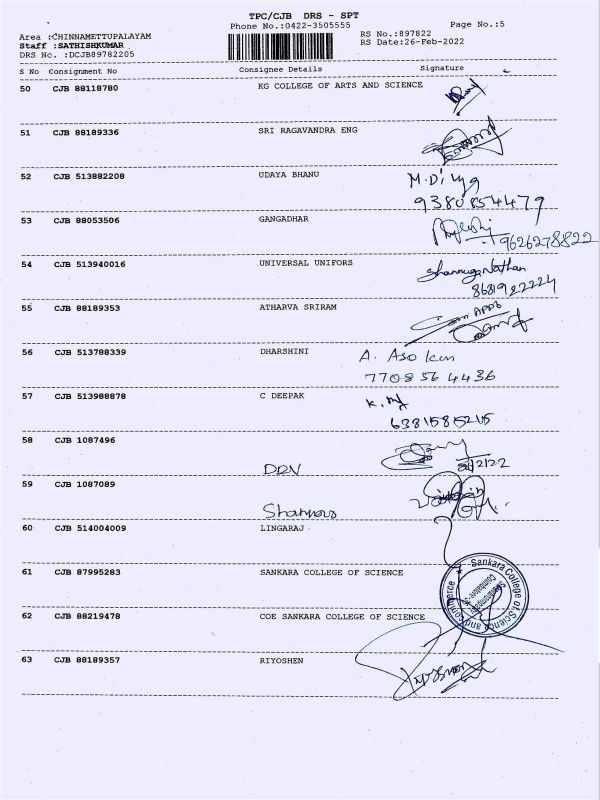 TPC/CJB DRS - SPT
Phone No.:0422-3505555
Page No.:5
Area :CHINNAMETTUPALAYAM
Staff :SATHISHKUMAR
DRS No. :DCJB89782205
RS No.:897822
RS Date:26-Feb-2022
S No Consignment No Consignee Details Signature
50 CJB 88118780 KG COLLEGE OF ARTS AND SCIENCE
51 CJB 88189336 SRI RAGAVANDRA ENG
52 CJB 513882208 UDAYA BHANU
M.Divya
9380854479
53 CJB 88053506 GANGADHAR
9626278822
54 CJB 513940016 UNIVERSAL UNIFORS
Shanmuganathan
8681922224
55 CJB 88189353 ATHARVA SRIRAM
56 CJB 513788339 DHARSHINI
A. Asokan
7708564436
57 CJB 513988878 C DEEPAK
6381585215
58 CJB 1087496
DRV
59 CJB 1087089
60 CJB 514004009 LINGARAJ
61 CJB 87995283 SANKARA COLLEGE OF SCIENCE
Sankara College of Science and Commerce
62 CJB 88219478 COE SANKARA COLLEGE OF SCIENCE
63 CJB 88189357 RIYOSHEN